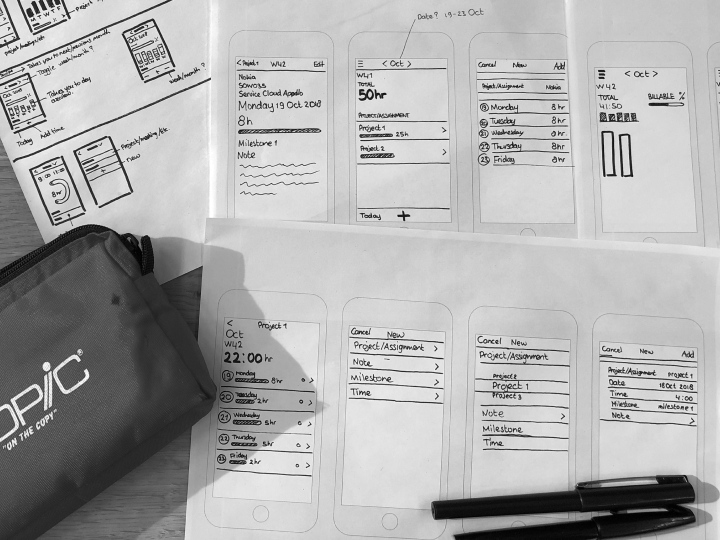 Date? 19-23 Oct
Project
M T W T F
Project/meeting/etc
Takes you to next/previous month
Toggle week/month?
Oct 2018
Takes you to day
week/month?
Today
Add time
Project/meeting/etc
New
9:00 17:00
8hr
+
< Project 1 W42 Edit
Nokia
Service Cloud
Monday 19 Oct 2018
8h
Milestone 1
Note
< Oct >
W41
TOTAL
50hr
PROJECT/ASSIGNMENT
Project 1
25h >
Project 2 >
Today +
Cancel New Add
Project/Assignment Nokia
19 Monday 8hr
20 Tuesday 8hr
21 Wednesday 8hr
22 Thursday 8hr
23 Friday 8hr
< Oct >
W42
TOTAL BILLABLE %
41:50
< Project 1
Oct
W42
22:00 hr
19 Monday
8hr >
20 Tuesday
2hr >
21 Wednesday
5hr >
22 Thursday
5hr >
23 Friday
2hr >
Cancel New
Project/Assignment >
Note >
Milestone >
Time >
Cancel New
Project/Assignment
Project2
Project 1
Project3
Note >
Milestone
Time
Cancel New Add
Project/Assignment Project 1
Date 18 Oct 2018
Time 4:00
Milestone milestone 1
Note >
OPIC
"ON THE COPY"